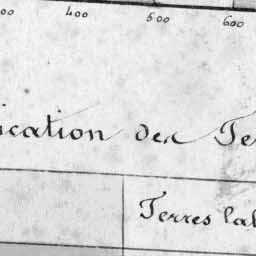 00 400 500 600
ication des Te
Terres lab